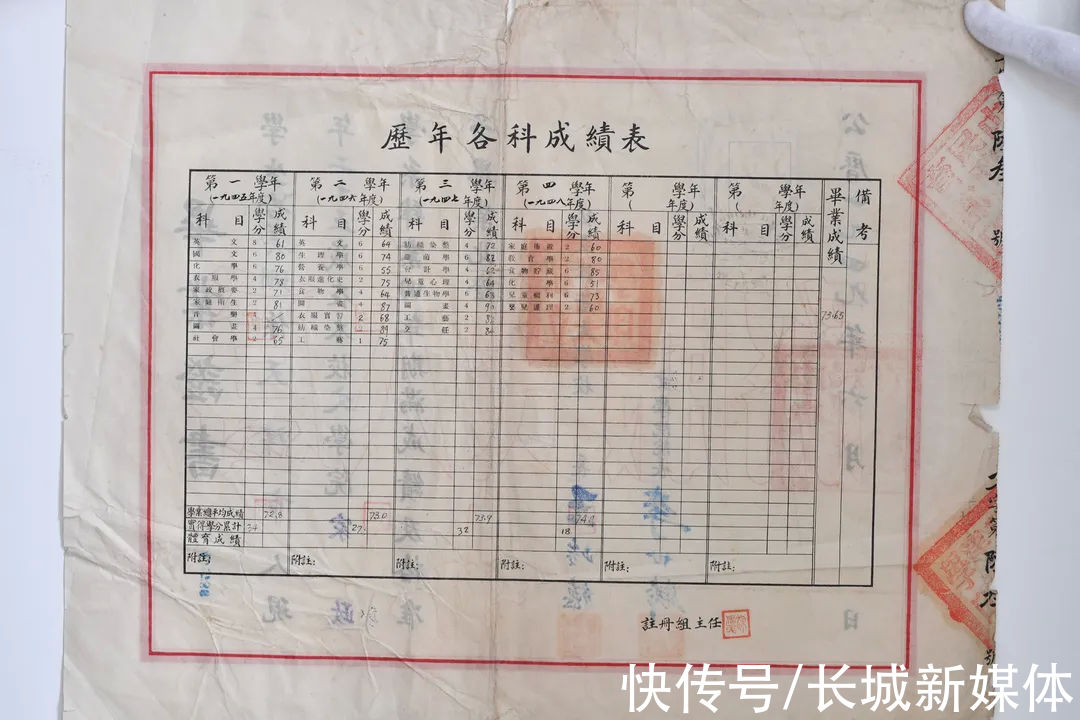 歷年各科成績表
第一學年 第二學年 第三學年 第四學年 第 學年 第 學年 畢業成績 備考
(一九四五年度) (一九四六年度) (一九四七年度) (一九四八年度) ( 年度) ( 年度)
科目 學分 成績 科目 學分 成績 科目 學分 成績 科目 學分 成績 科目 學分 成績 科目 學分 成績
英文 8 61 英文 6 64 紡織染整 4 72 家庭佈置 2 60
國文 6 80 生理學 6 74 學 6 82 教育學 2 80
化學 6 76 營養學 6 55 會計學 4 62 食物貯藏 6 85
衣服學 4 78 衣服進化史 2 75 兒童心理 4 64 化學 6 51
家政概要 2 71 食物學 4 64 普通生物學 6 63 兒童福利 6 73
家庭衛生 2 81 圖畫 4 87 圖畫 4 90 嬰兒護理 2 60
音樂 衣服實習 2 68 工藝 2 73.65
圖畫 4 76 紡織染整 2 89 2
社會學 2 65 工藝 1 75
學業總平均成績 72.8 73.0 73.9
實得學分累計 34 27 32 18
體育成績
附註: 附註: 附註: 附註: 附註: 附註:
註冊組主任
快传号/长城新媒体